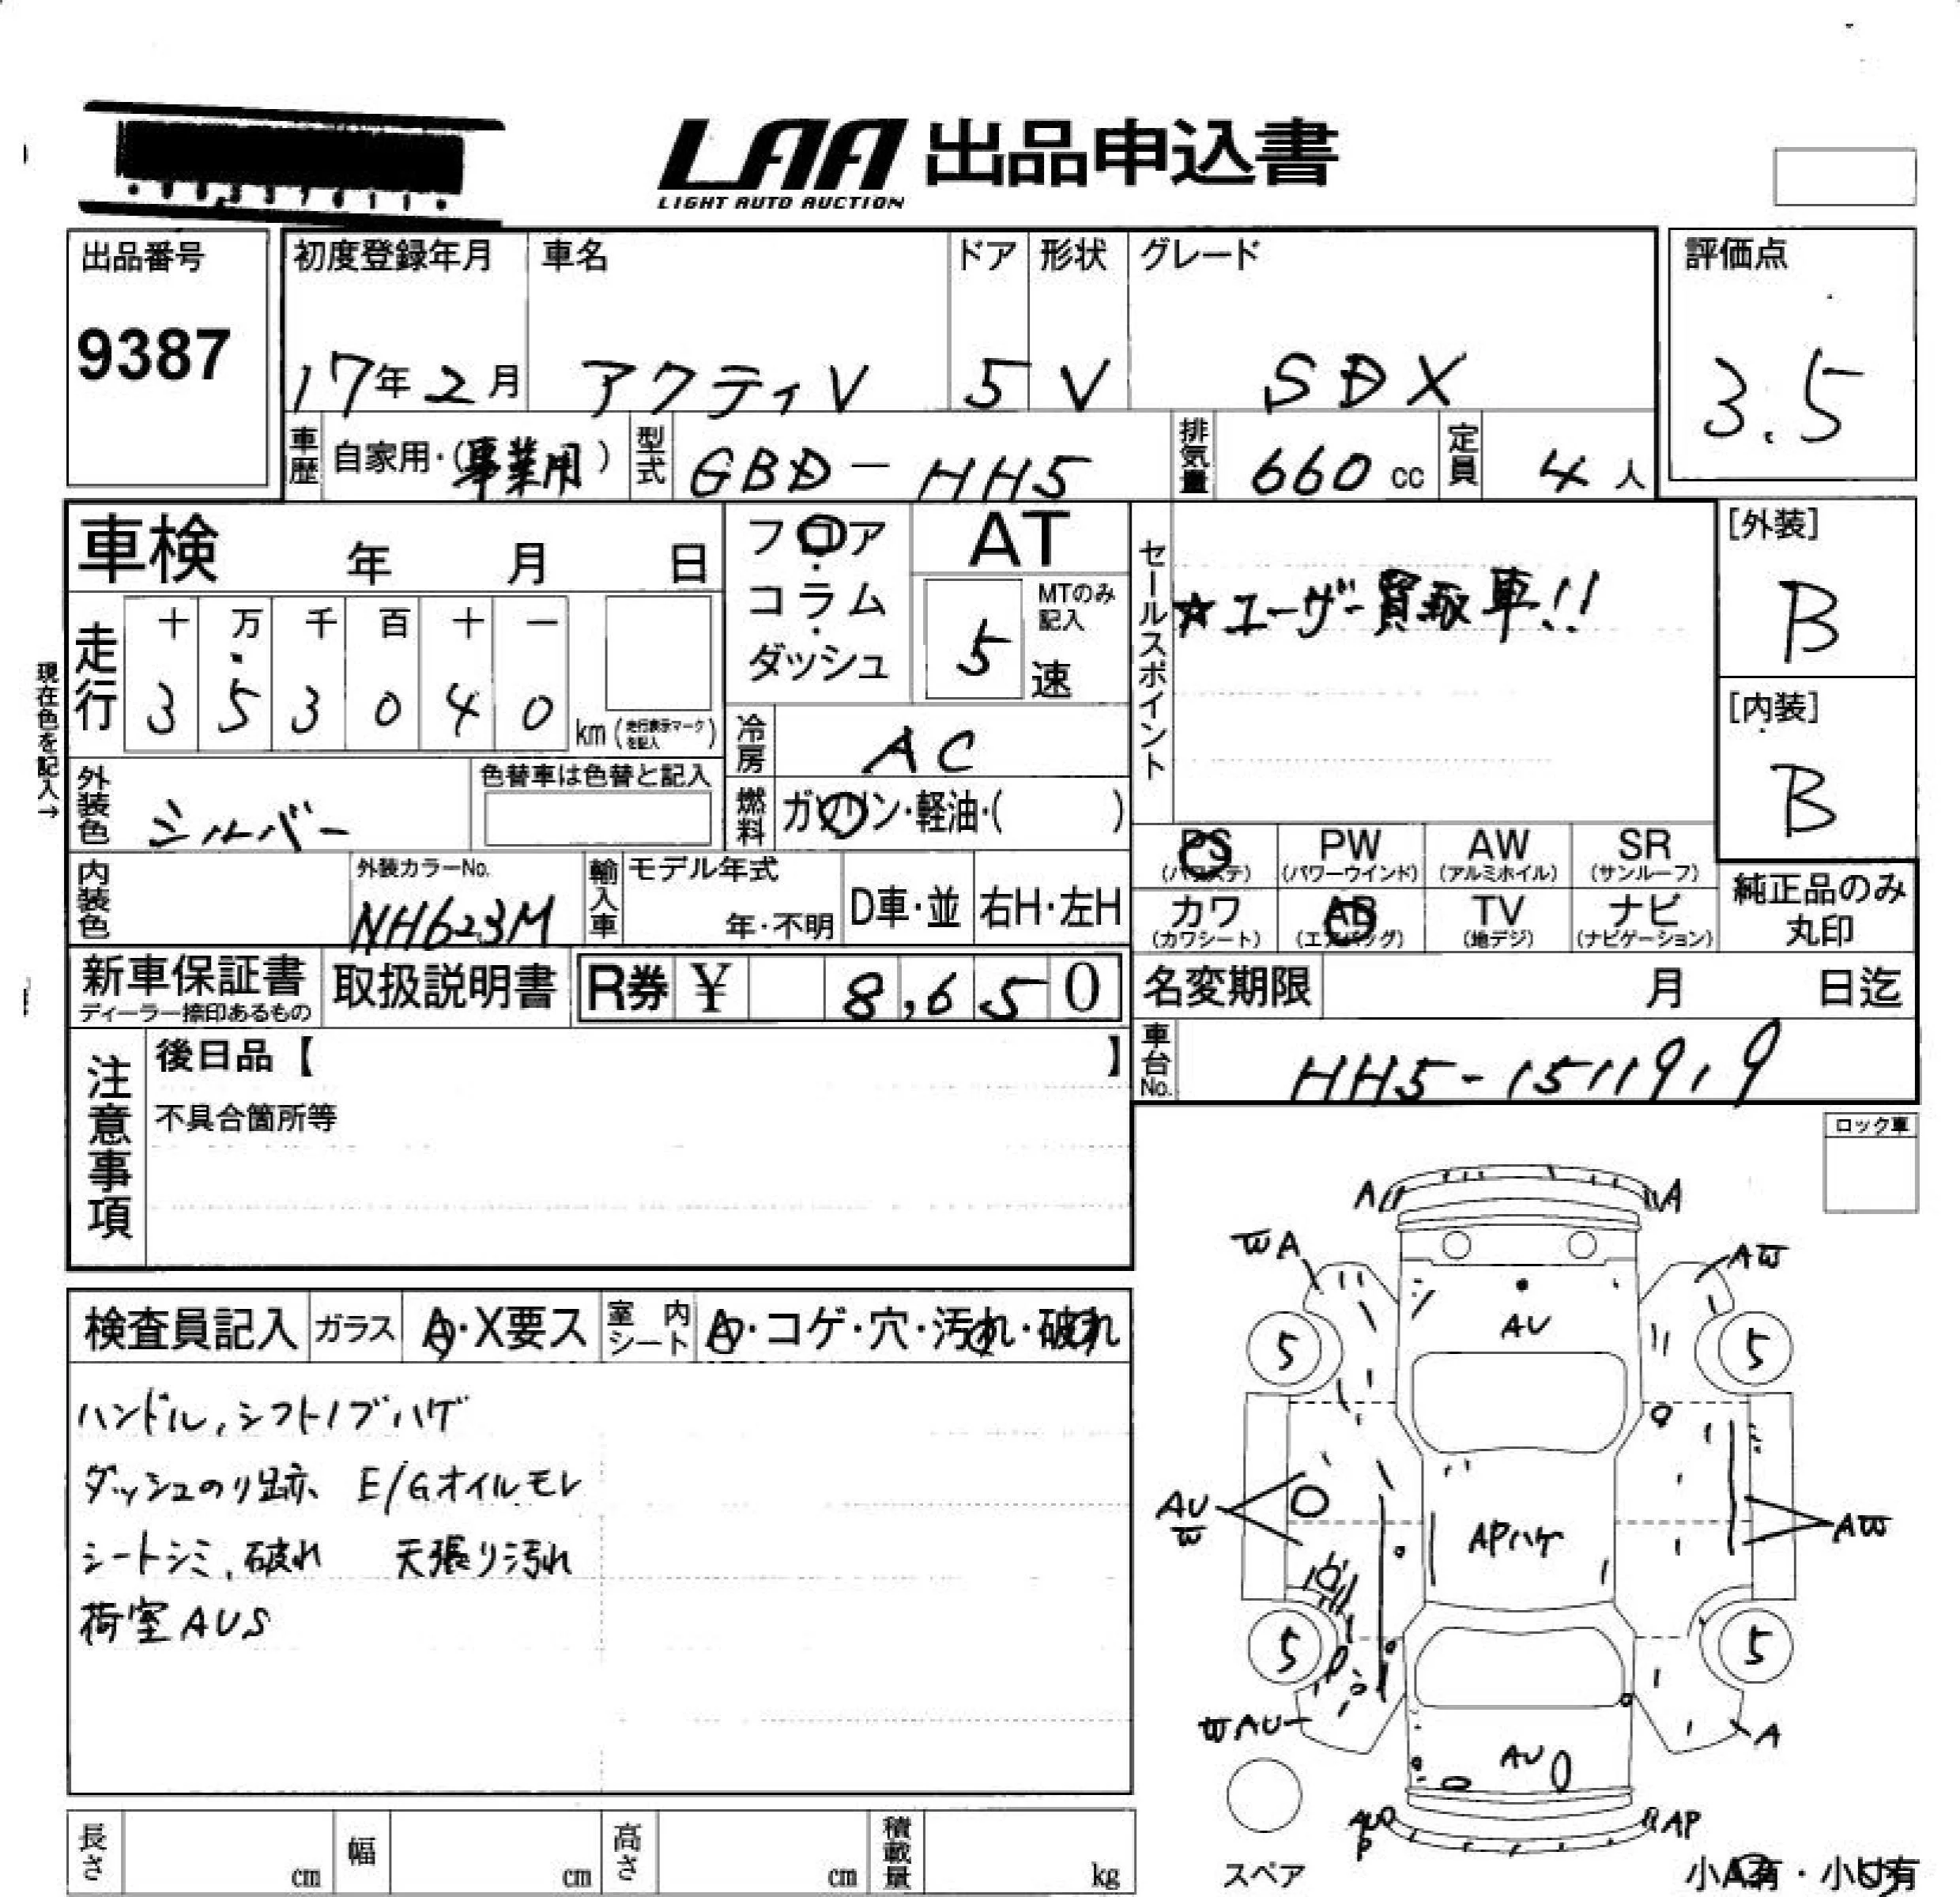 LAA 出品申込書
LIGHT AUTO AUCTION
出品番号
9387
初度登録年月 車名 ドア 形状 グレード
17年2月 アクティV 5 V SDX
評価点
3.5
車歴 自家用・(事業用) 型式 GBD-HH5 排気量 660cc 定員 4人
車検 年 月 日
フロア
コラム
ダッシュ
AT
MTのみ記入
5 速
セールスポイント
☆ユーザー買取車!!
[外装]
B
[内装]
B
現在色を記入→
走行 十 万 千 百 十 一
3 5 3 0 4 0 km(走行表示マークを記入)
冷房 AC
外装色 シルバー 色替車は色替と記入
燃料 ガソリン・軽油・( )
PS PW AW SR
(パワステ) (パワーウインド) (アルミホイル) (サンルーフ)
カワ AB TV ナビ
(カワシート) (エアバッグ) (地デジ) (ナビゲーション)
純正品のみ
丸印
内装色 外装カラーNo. NH623M
輸入車 モデル年式 年・不明 D車・並 右H・左H
新車保証書 取扱説明書 R券 ¥ 8,650
ディーラー捺印あるもの
名変期限 月 日迄
車台No. HH5-1511919
注意事項
後日品【 】
不具合箇所等
ロック車
検査員記入 ガラス A・X要ス 室内シート A・コゲ・穴・汚れ・破れ
ハンドル,シフトノブハゲ
ダッシュのり跡 E/Gオイルモレ
シートシミ,破れ 天張り汚れ
荷室AUS
A A
WA AW
AU
5 5
AU
W
APハゲ
AW
5 5
WAU
AU
A
AU
P
AP
スペア
小A有・小U有
長さ cm 幅 cm 高さ cm 積載量 kg